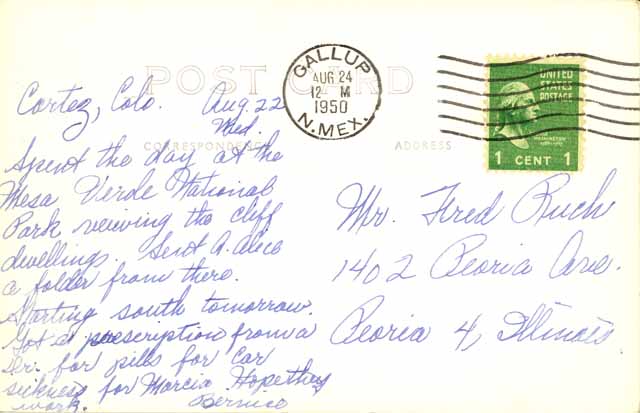 POST CARD
CORRESPONDENCE
ADDRESS
GALLUP
AUG 24
12 M
1950
N. MEX.
UNITED
STATES
POSTAGE
WASHINGTON
1 CENT 1
Cortez, Colo. Aug. 22
Wed.
Spent the day at the
Mesa Verde National
Park viewing the cliff
dwellings. Sent A. Alice
a folder from there.
Starting south tomorrow.
Got a prescription from a
Dr. for pills for car
sickness for Marcia Hope they
work. Bernice
Mr. Fred Ruch
1402 Peoria Ave.
Peoria 4, Illinois